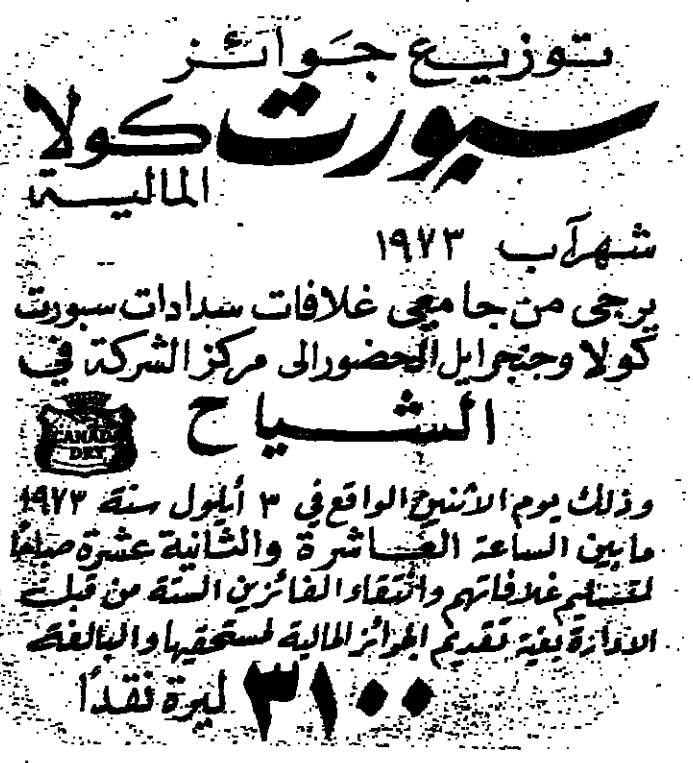 توزيع جوائز
سپورت كولا
المالية
شهر آب ١٩٧٣
يرجى من جامعي غلافات سدادات سبورت
كولا وجنجرايل الحضور الى مركز الشركة في
الشياح
CANADA
DRY
وذلك يوم الاثنين الواقع في ٣ أيلول سنة ١٩٧٣
ما بين الساعة العاشرة والثانية عشرة صباحًا
لتسليم غلافاتهم وانتقاء الفائزين الستة من قبل
الادارة بغية تقديم الجوائز المالية لمستحقيها والبالغة
٣١٠٠ ليرة نقدًا